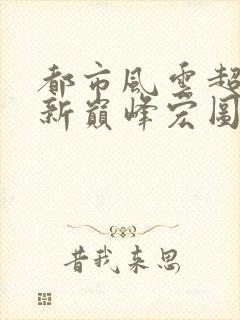 都市风云超
新巅峰宏图
昔我来思